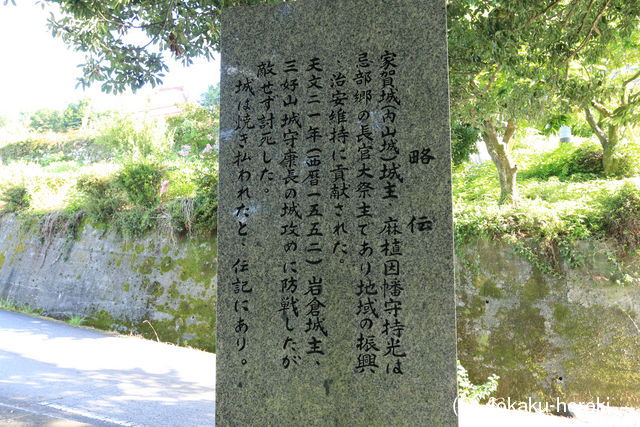 略伝
家賀城(内山城)城主 麻植因幡守持光は
忌部郷の長官大祭主であり地域の振興
、治安維持に貢献された。
天文二一年(西暦一五五二) 岩倉城主、
三好山城守康長の城攻めに防戦したが
敵せず討死した。
城は焼き払われたと、伝記にあり。